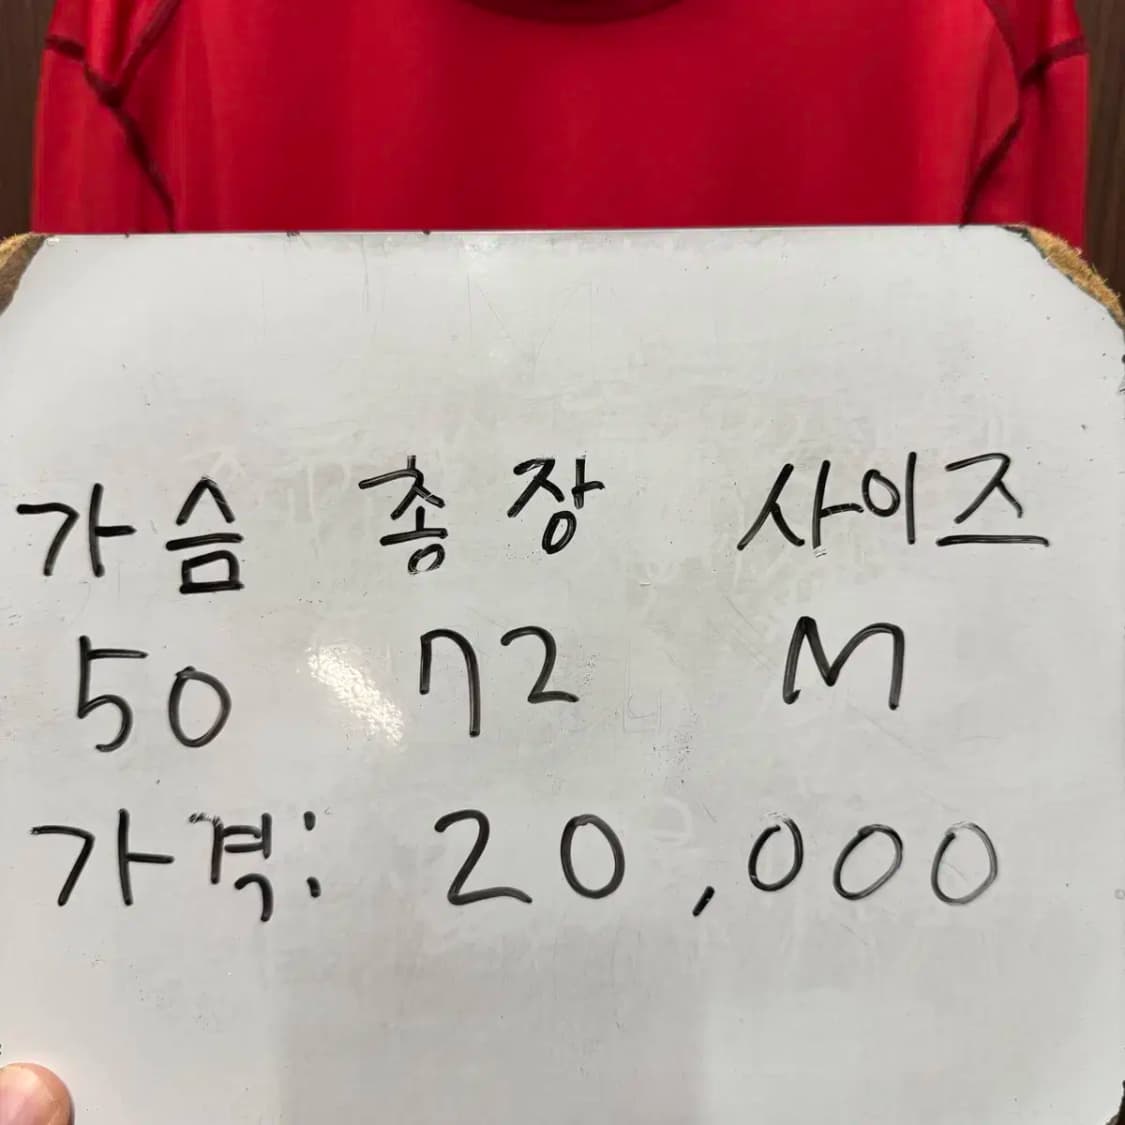 가슴 총장 사이즈
50 72 M
가격: 20,000